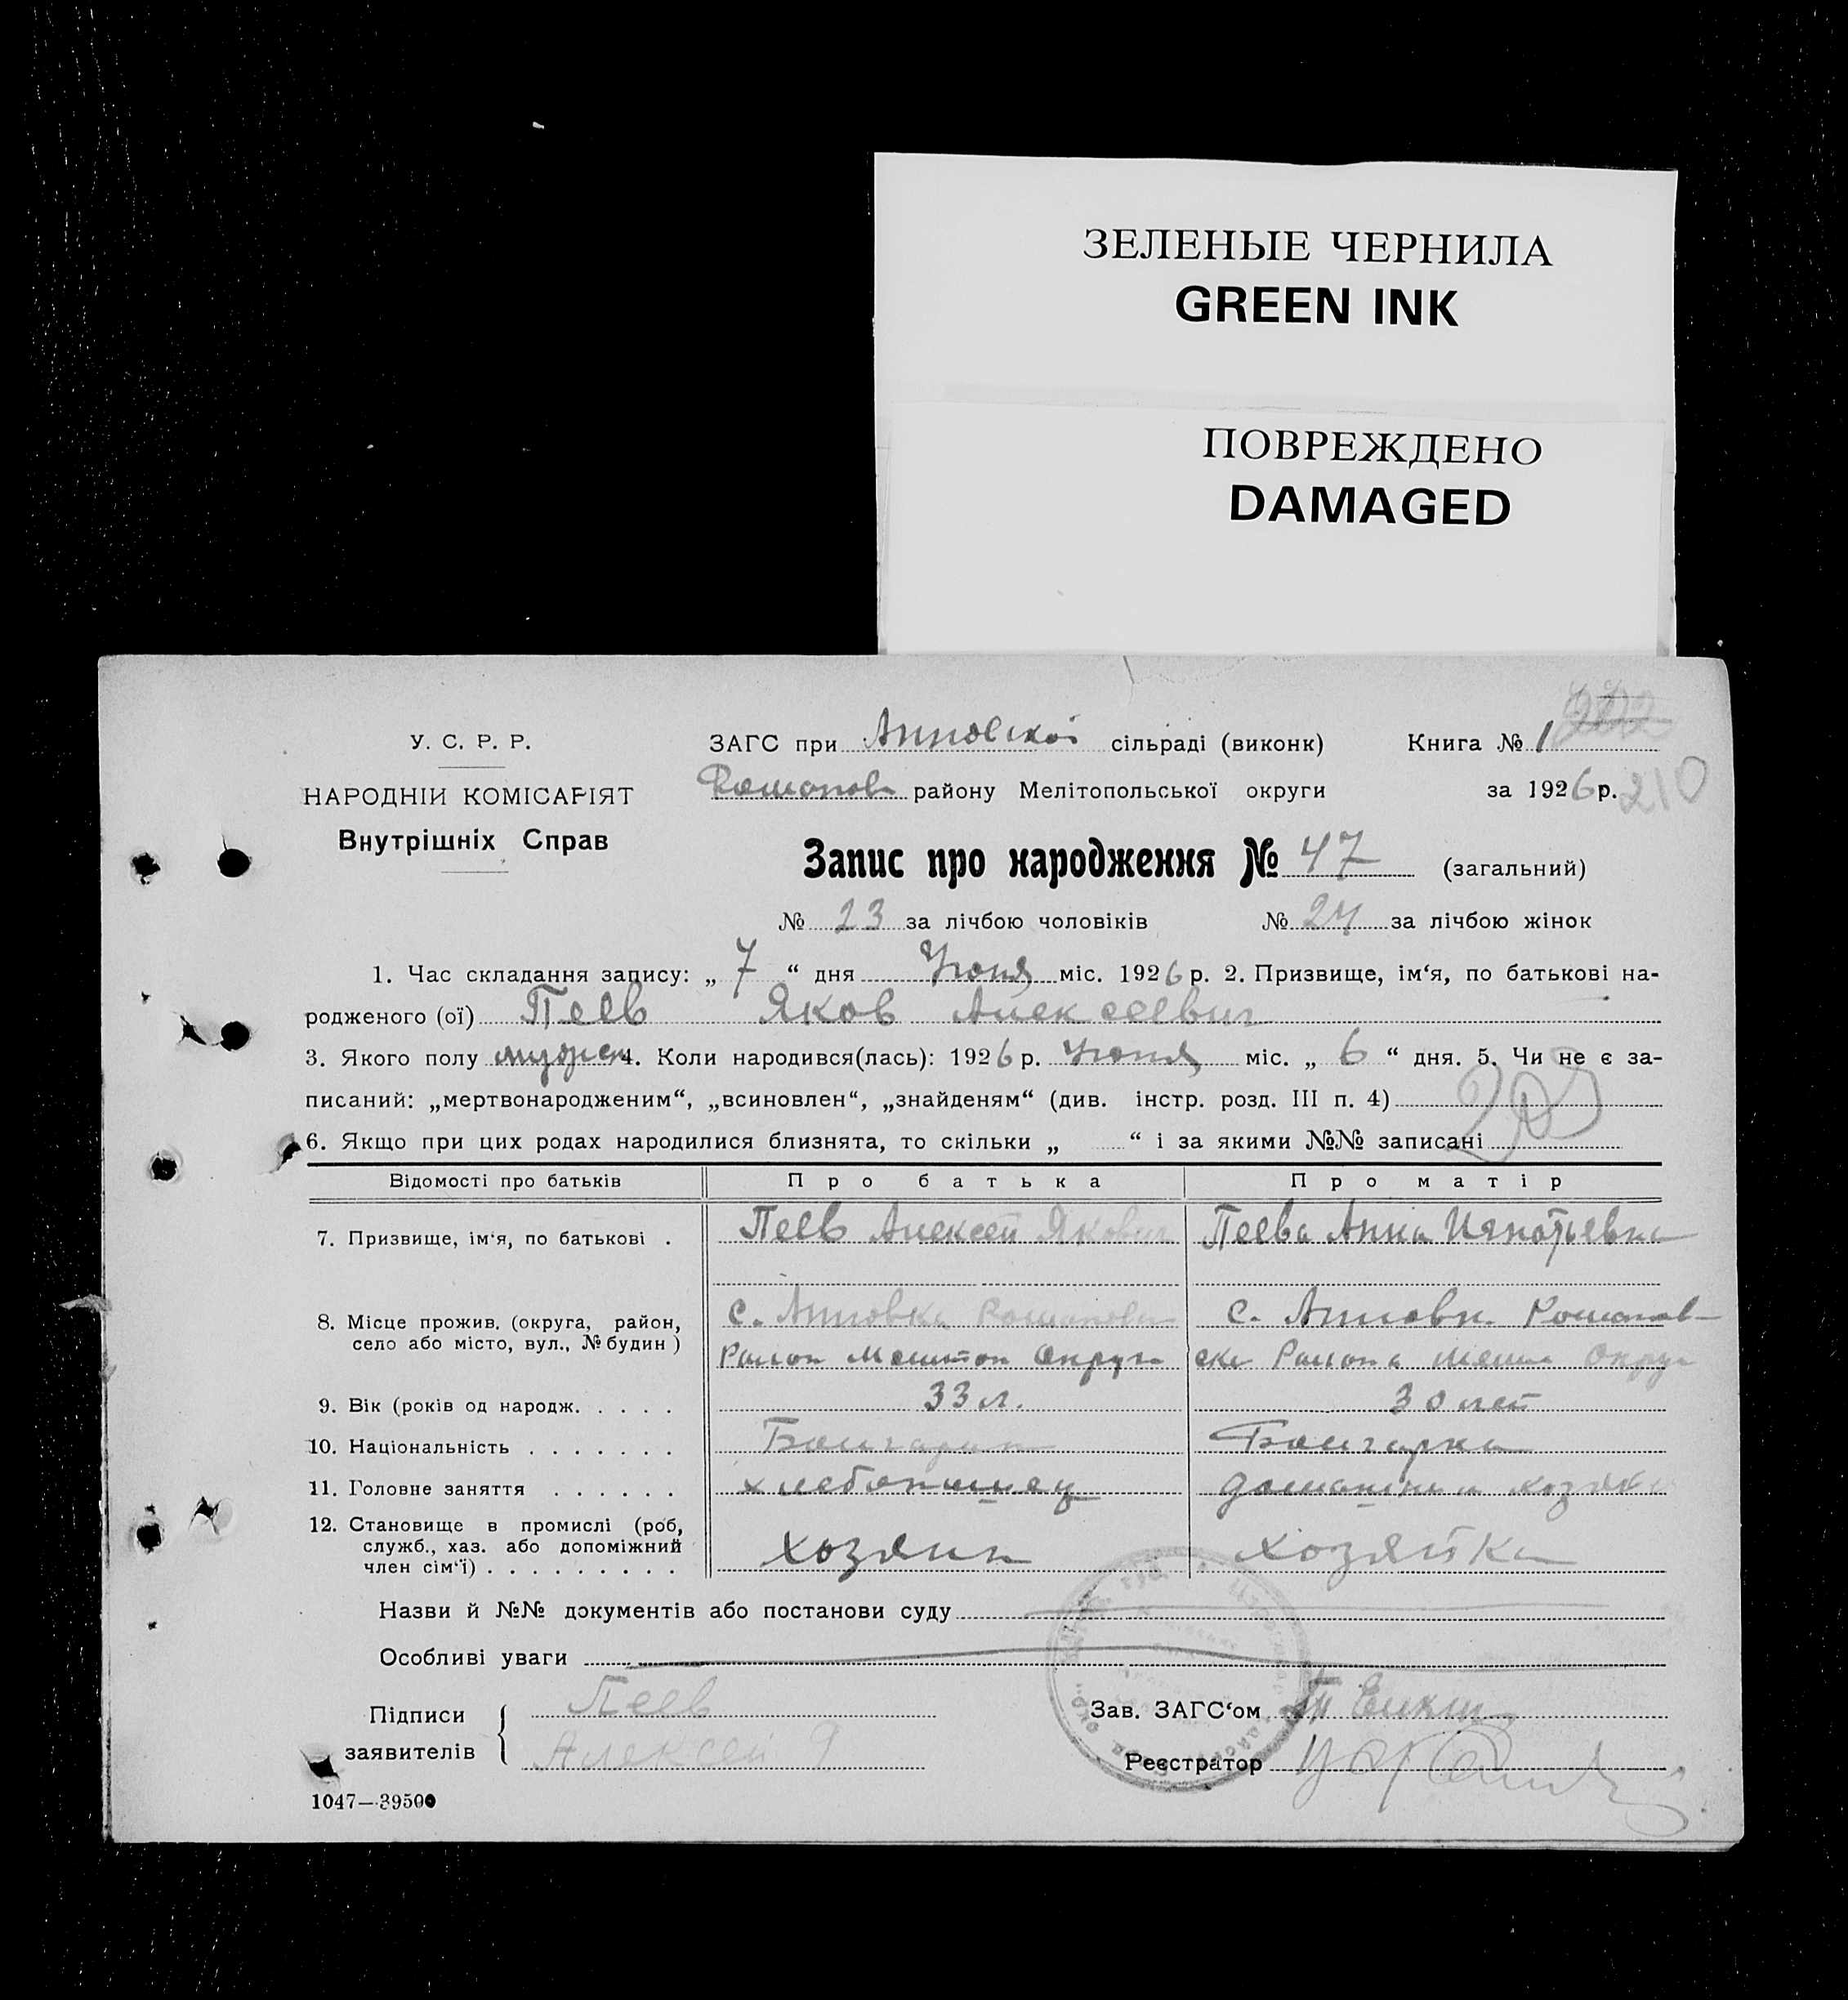 ЗЕЛЕНЫЕ ЧЕРНИЛА
GREEN INK
ПОВРЕЖДЕНО
DAMAGED
У. С. Р. Р.
НАРОДНІИ КОМІСАРІЯТ
Внутрішніх Справ
ЗАГС при Анновской сільраді (виконк) Книга № 1
Романов району Мелітопольської округи за 1926 р. 210
Запис про народження № 47 (загальний)
№ 23 за лічбою чоловіків № 24 за лічбою жінок
1. Час складання запису: „ 7 “ дня Июня міс. 1926 р. 2. Призвище, ім‘я, по батькові на-
родженого (ої) Пеев Яков Алексеевич
3. Якого полу мужск 4. Коли народився(лась): 1926 р. Июня міс. „ 6 “ дня. 5. Чи не є за-
писаний: „мертвонародженим“, „всиновлен“, „знайденям“ (див. інстр. розд. III п. 4)
6. Якщо при цих родах народилися близнята, то скільки „ “ і за якими №№ записані
Відомості про батьків Про батька Про матір
7. Призвище, ім‘я, по батькові . Пеев Алексей Якович Пеева Анна Игнатьевна
8. Місце прожив. (округа, район, с. Анновка Романовск с. Анновк. Романов-
село або місто, вул., № будин ) Район Мелитоп Округи ск Района Мелит Округ
9. Вік (років од народж. . . . . 33 л. 30 лет
10. Національність . . . . . . . Болгарин Болгарка
11. Головне заняття . . . . . . хлебопашец домашняя хозяйк
12. Становище в промислі (роб,
служб., хаз. або допоміжний хозяин хозяйка
член сім‘ї) . . . . . . . . .
Назви й №№ документів або постанови суду
Особливі уваги
Підписи Пеев Зав. ЗАГС‘ом
заявителів Алексей Я Реєстратор
1047—39500